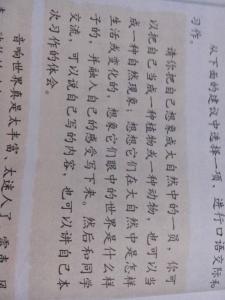 从下面的建议中选择一项，进行口语交际和
习作。
请你把自己想象成大自然中的一员，你可
以把自己当成一种植物或一种动物，也可以当
成一种自然现象，想想它们在大自然中是怎样
生活或变化的，想象它们眼中的世界是什么样
子的，并融入自己的感受写下来。然后和同学
交流，可以说自己写的内容，也可以讲自己本
次习作的体会。
音响世界真是太丰富、太迷人了，雷声、风